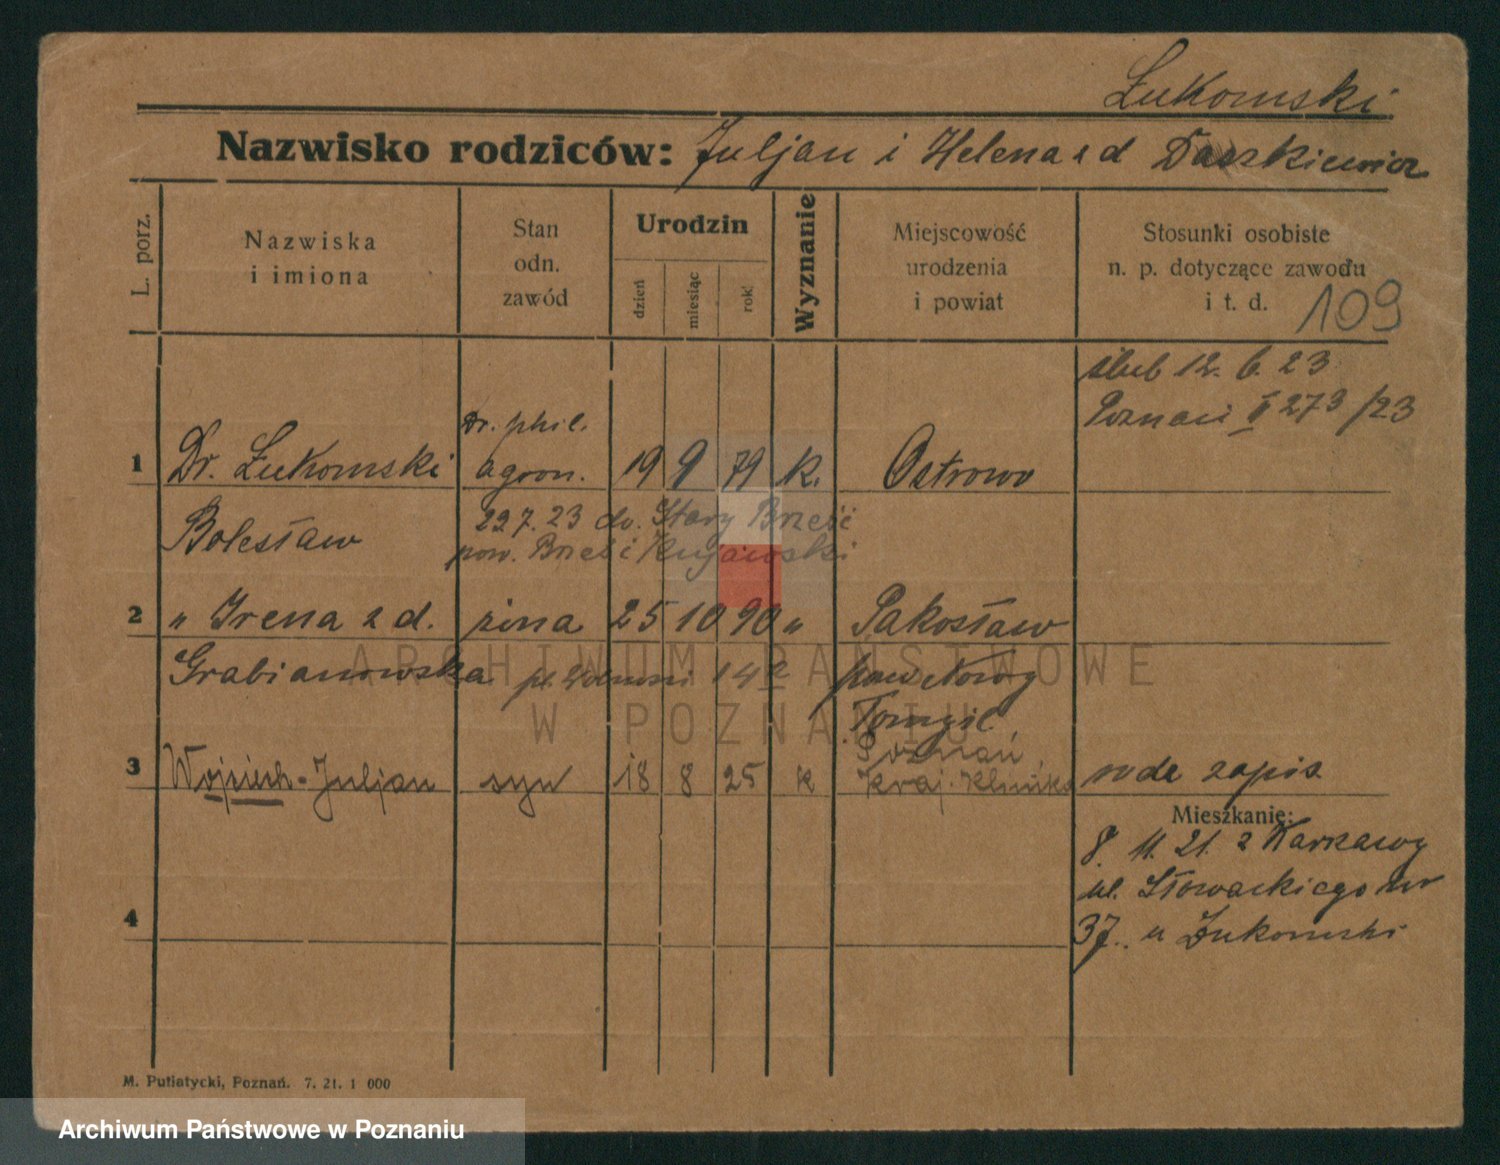 Żukomski
Nazwisko rodziców: Juljan i Helena z d Daszkiewicz
L. porz.
Nazwiska
i imiona
Stan
odn.
zawód
Urodzin
dzień
miesiąc
rok
Wyznanie
Miejscowość
urodzenia
i powiat
Stosunki osobiste
n. p. dotyczące zawodu
i t. d.
109
ślub 12. 6. 23
Poznań II 273/23
Dr. phil.
1 Dr. Żukomski agron. 19 9 79 k. Ostrowo
Bolesław 22 7. 23 do. Stary Brześć
pow. Brześć Kujawski
2 " Irena z d. żona 25 10 90 " Pakosław
Grabianowska 14 pow. Nowy
Tomyśl
Poznań
3 Wojciech-Juljan syn 18 8 25 k Kraj. Klinika wda zapis
Mieszkanie:
8. 11. 21. z
ul. Słowackiego
4
37. u Żukomski
M. Putiatycki, Poznań. 7. 21. 1 000
ARCHIWUM PAŃSTWOWE
W POZNANIU
Archiwum Państwowe w Poznaniu